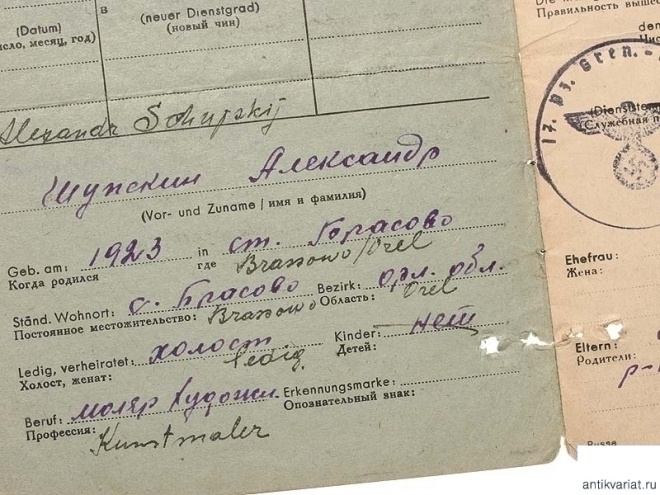 (Datum)
(число, месяц, год)
в
(neuer Dienstgrad)
(новый чин)
Alexandr Schupskij
Шупский Александр
(Vor- und Zuname / имя и фамилия)
Geb. am: 1923 in ст. Брасово
Когда родился где Brassowo/Orel
Ständ. Wohnort: с. Брасово Bezirk: орл. обл.
Постоянное местожительство: Brassowo Область: Orel
Ledig, verheiratet: холост Kinder: нет
Холост, женат: ledig Детей:
Beruf: маляр художн. Erkennungsmarke:
Профессия: Kunstmaler Опознавательный знак:
Правильность
17. Pz. Gren.-
(Dienststem
(Служебная п
Ehefrau:
Жена:
Eltern:
Родители:
р-
Russe
antikvariat.ru